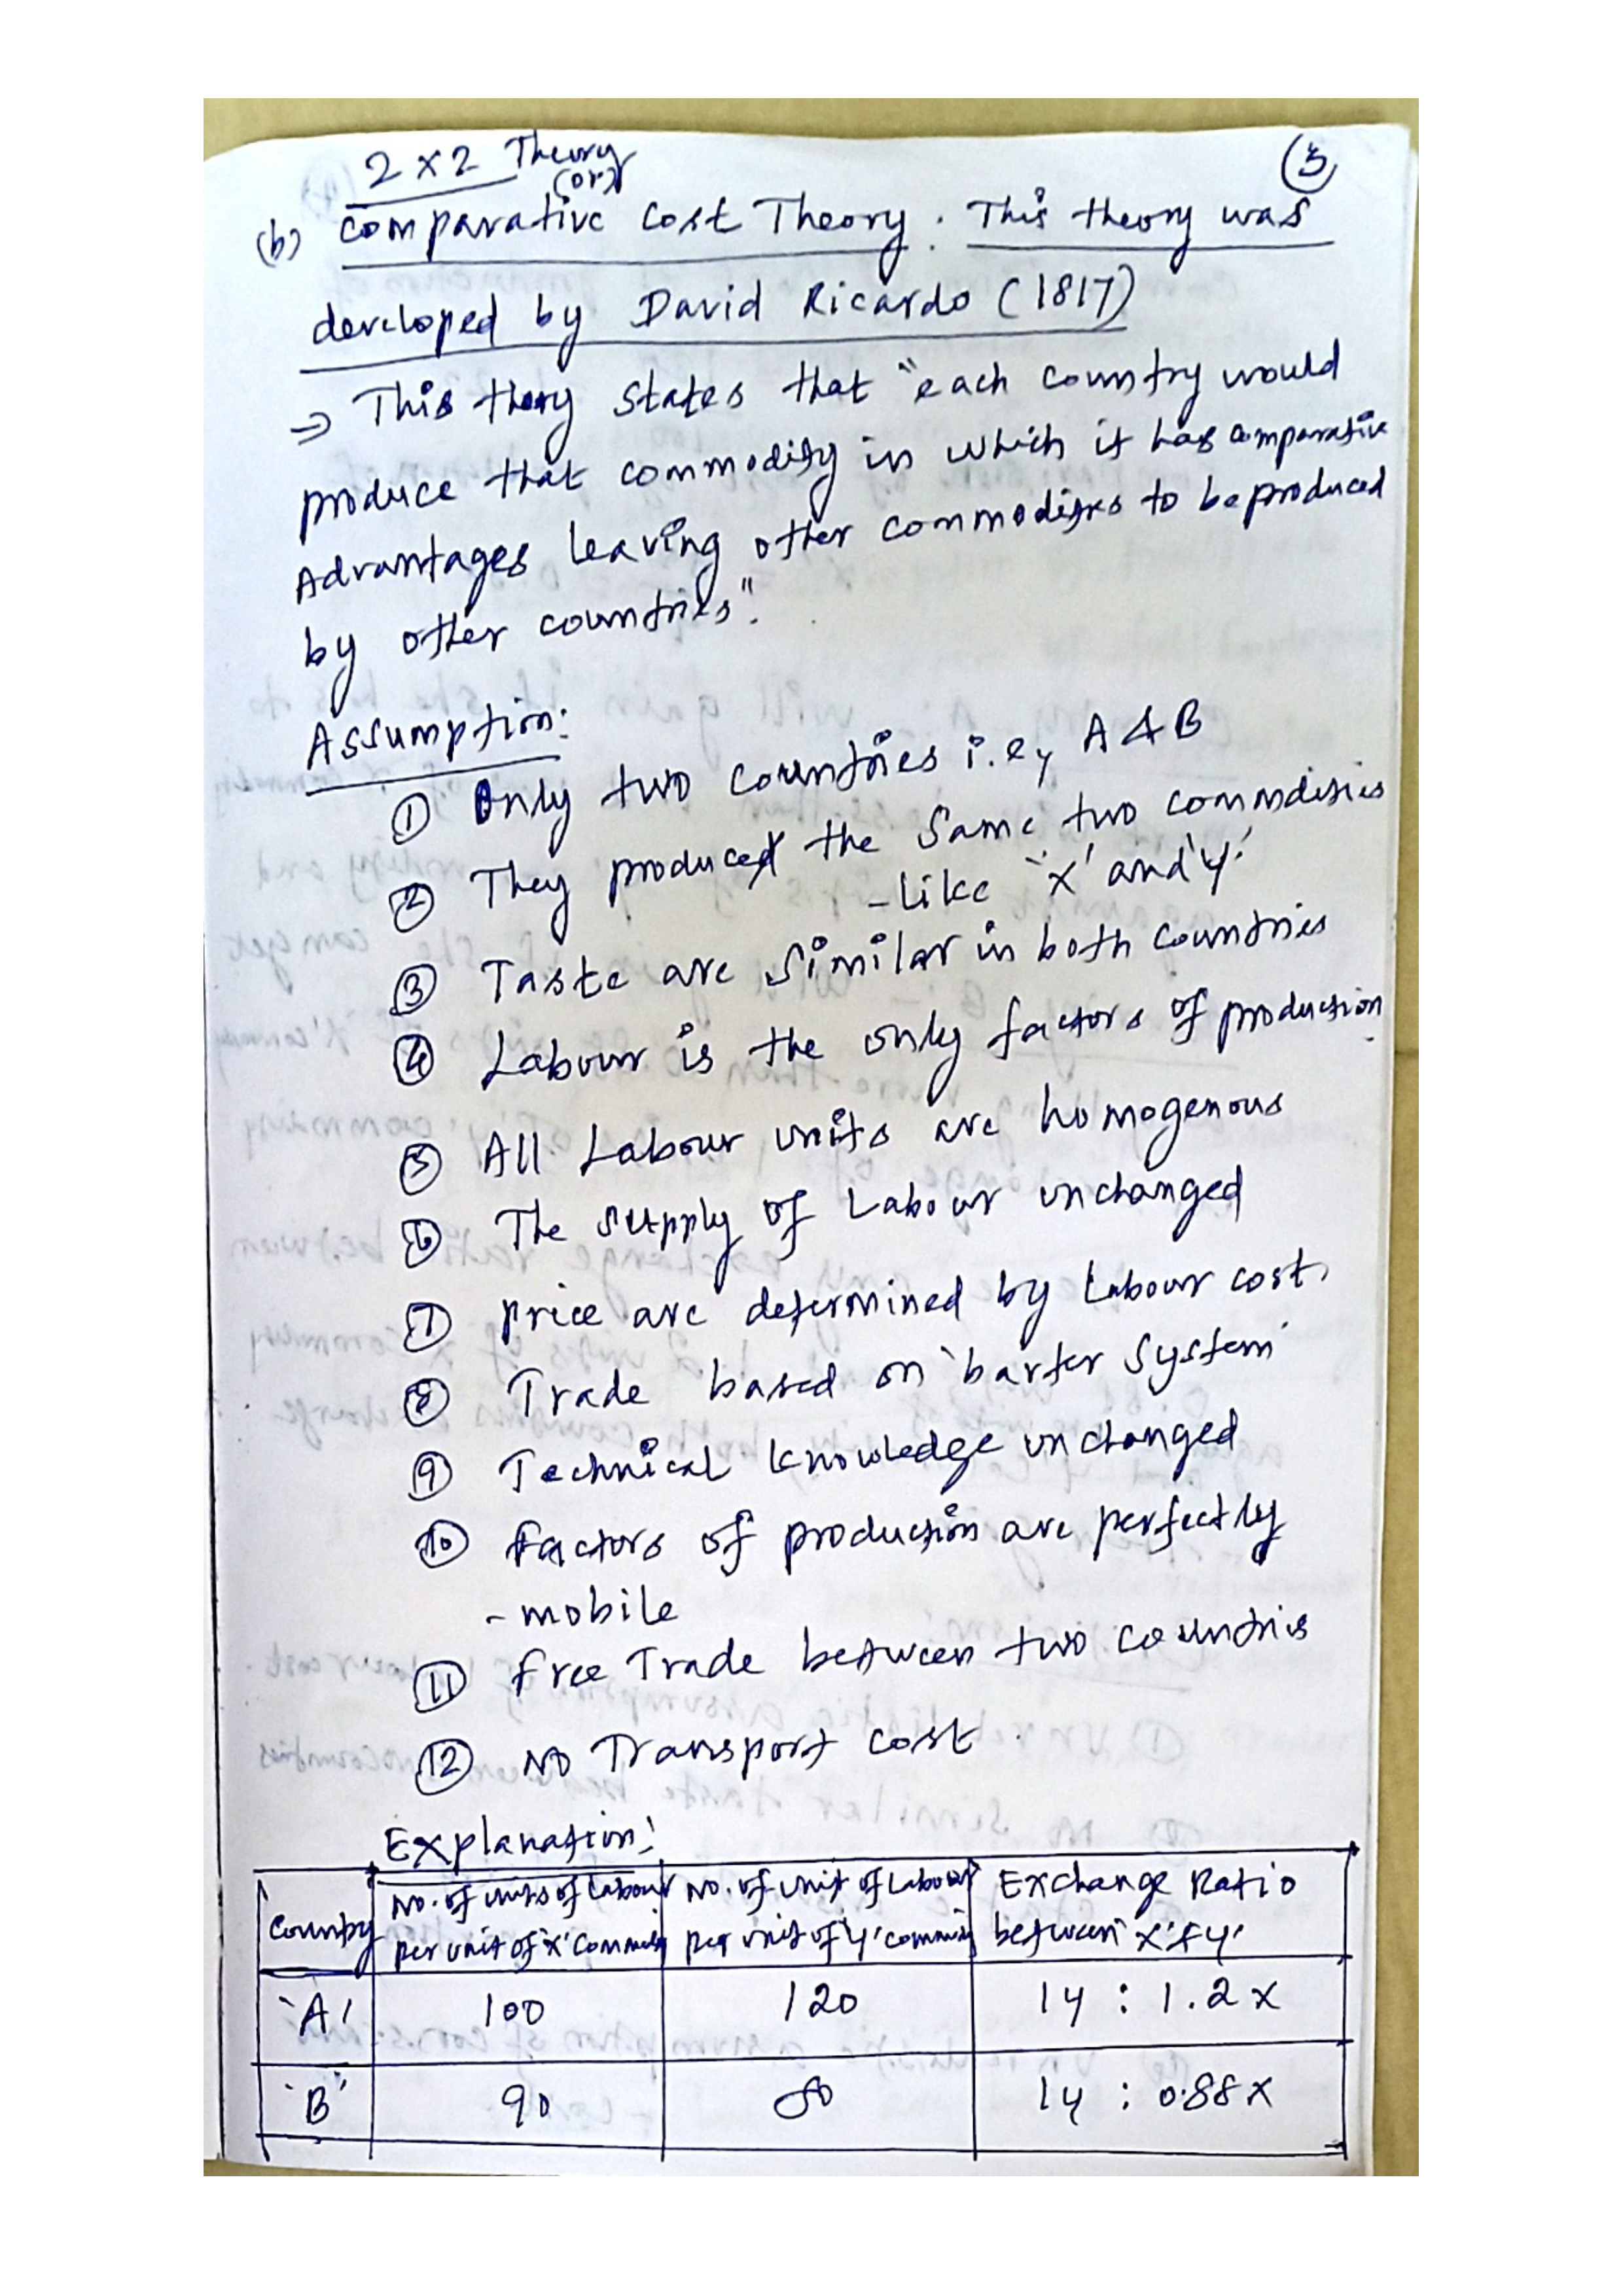 2 x 2 Theory
(or)
(3)
(b) Comparative Cost Theory. This theory was
developed by David Ricardo (1817)
⇒ This thory states that "each country would
produce that commodity in which it has comparative
Advantages leaving other commodities to be produced
by other countries".
Assumption:
① Only two countries i.e, A & B
② They produced the same two commodities
- like 'x' and 'y'
③ Taste are similar in both countries
④ Labour is the only factors of production
⑤ All Labour units are homogenous
⑥ The supply of Labour unchanged
⑦ price are determined by Labour cost.
⑧ Trade based on 'barter System'
⑨ Technical knowledge unchanged
⑩ Factors of production are perfectly
- mobile
⑪ free Trade between two countries
⑫ No Transport cost
Explanation:
Country | No. of units of Labour per unit of 'x' Commodity | No. of unit of Labour per unit of 'y' commodity | Exchange Ratio between 'x' & 'y'
'A' | 100 | 120 | 1y : 1.2x
'B' | 90 | 80 | 1y : 0.88x